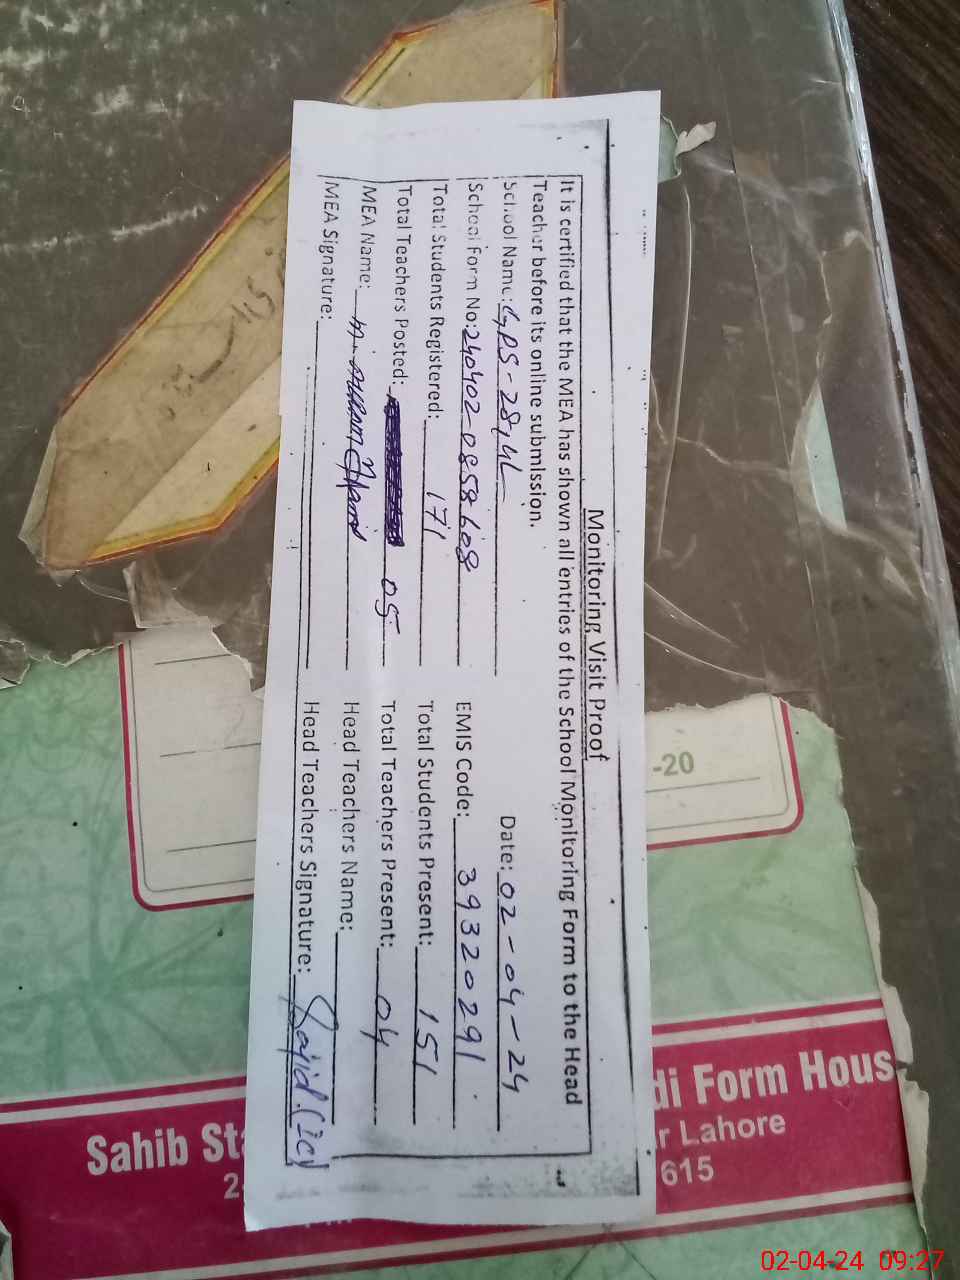 Monitoring Visit Proof
It is certified that the MEA has shown all entries of the School Monitoring Form to the Head
Teacher before its online submission.
School Name: GPS-281 Date: 02-04-24
School Form No: 240402-0858608 EMIS Code: 39320291
Total Students Registered: 171 Total Students Present: 151
Total Teachers Posted: 05 Total Teachers Present: 04
MEA Name: M. Head Teachers Name:
MEA Signature: Head Teachers Signature: Sajid (IC)
-20
Sahib Sta di Form Hous
r Lahore
2 615
02-04-24 09:27